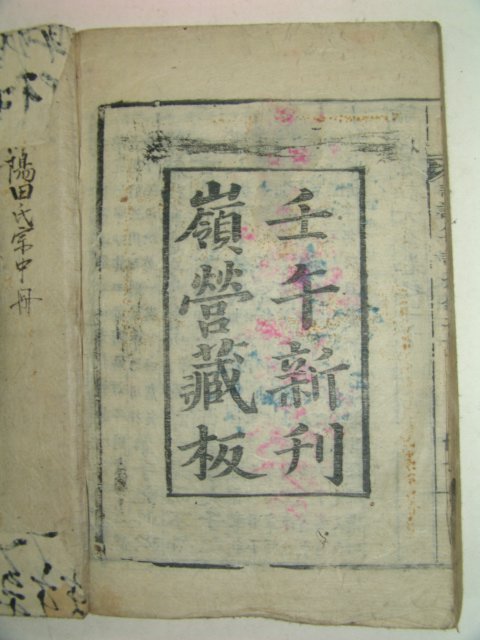 壬午新刊
嶺營藏板
陽田氏宗中冊